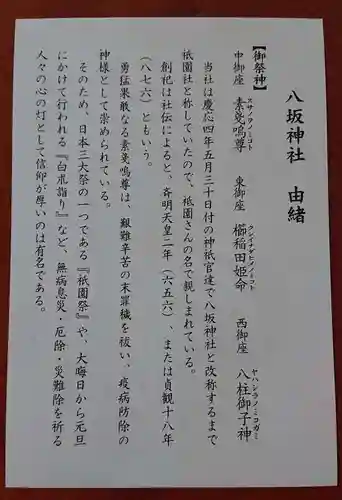 八坂神社 由緒
【御祭神】
中御座 素戔嗚尊 東御座 櫛稲田姫命 西御座 八柱御子神
スサノヲノミコト クシイナダヒメノミコト ヤハシラノミコガミ
当社は慶応四年五月三十日付の神祇官達で八坂神社と改称するまで
祗園社と称していたので、祗園さんの名で親しまれている。
創祀は社伝によると、斉明天皇二年(六五六)、または貞観十八年
(八七六)ともいう。
勇猛果敢なる素戔嗚尊は、艱難辛苦の末罪穢を祓い、疫病防除の
神様として崇められている。
そのため、日本三大祭の一つである『祇園祭』や、大晦日から元旦
にかけて行われる『白朮詣り』など、無病息災・厄除・災難除を祈る
人々の心の灯として信仰が厚いのは有名である。